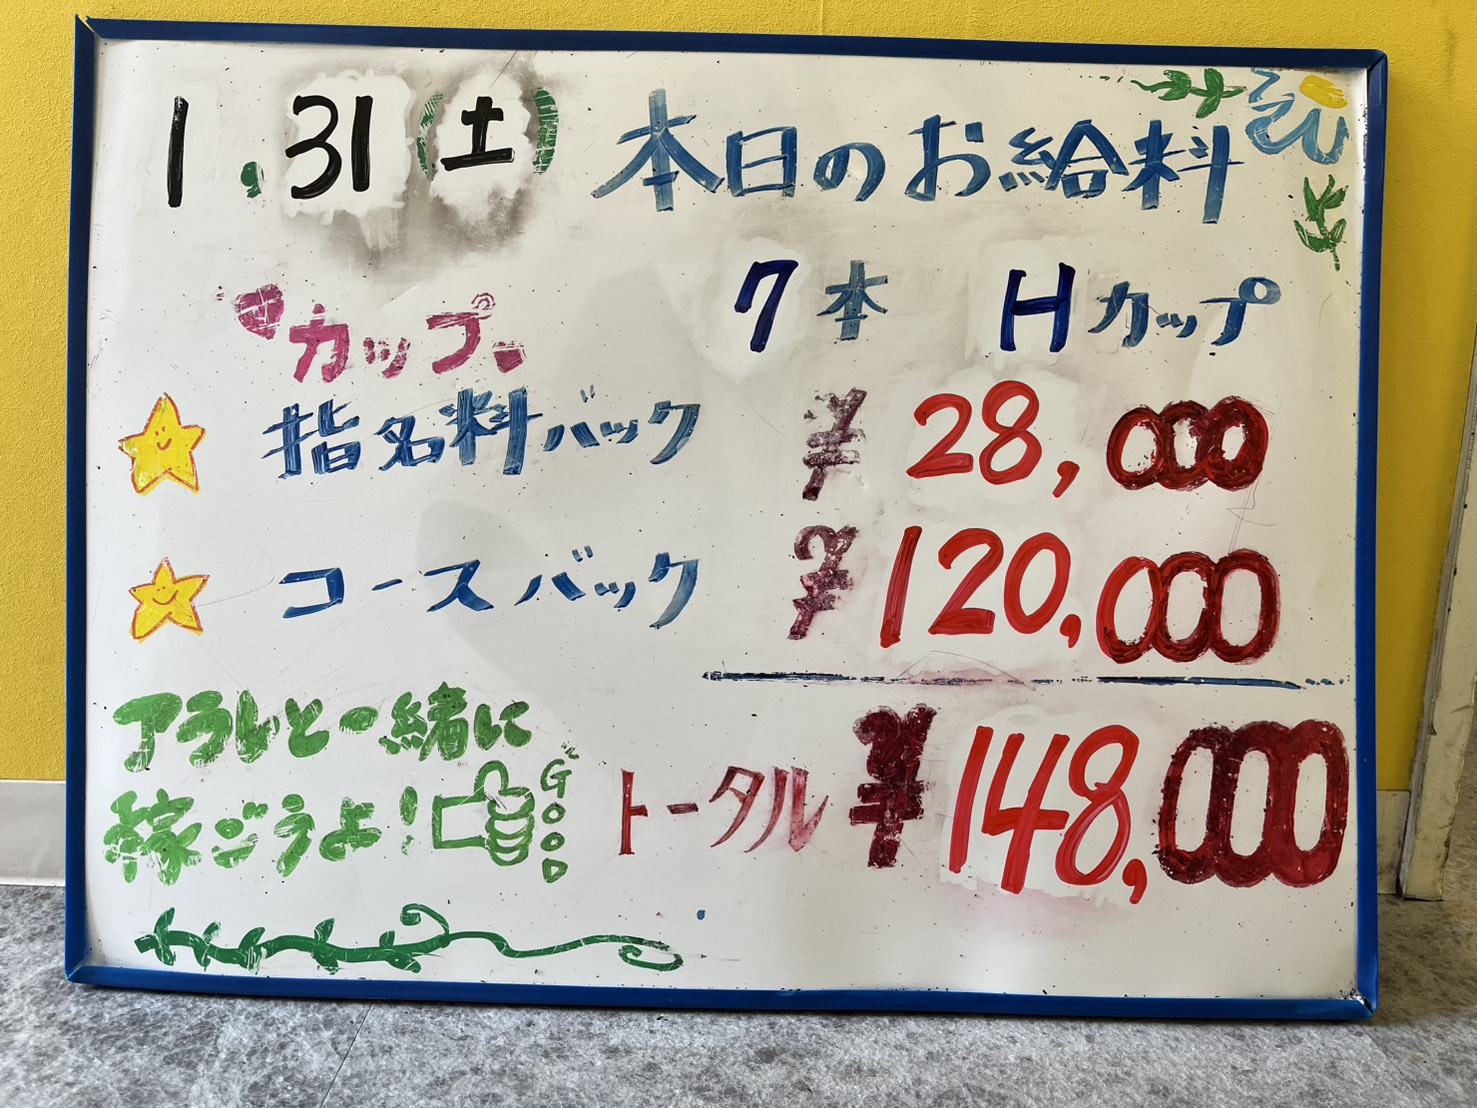 1.31(土) 本日のお給料
カップ。 7本 Hカップ
指名料バック ¥28,000
コースバック ¥120,000
アラレと一緒に
稼ごうよ! GOOD
トータル ¥148,000